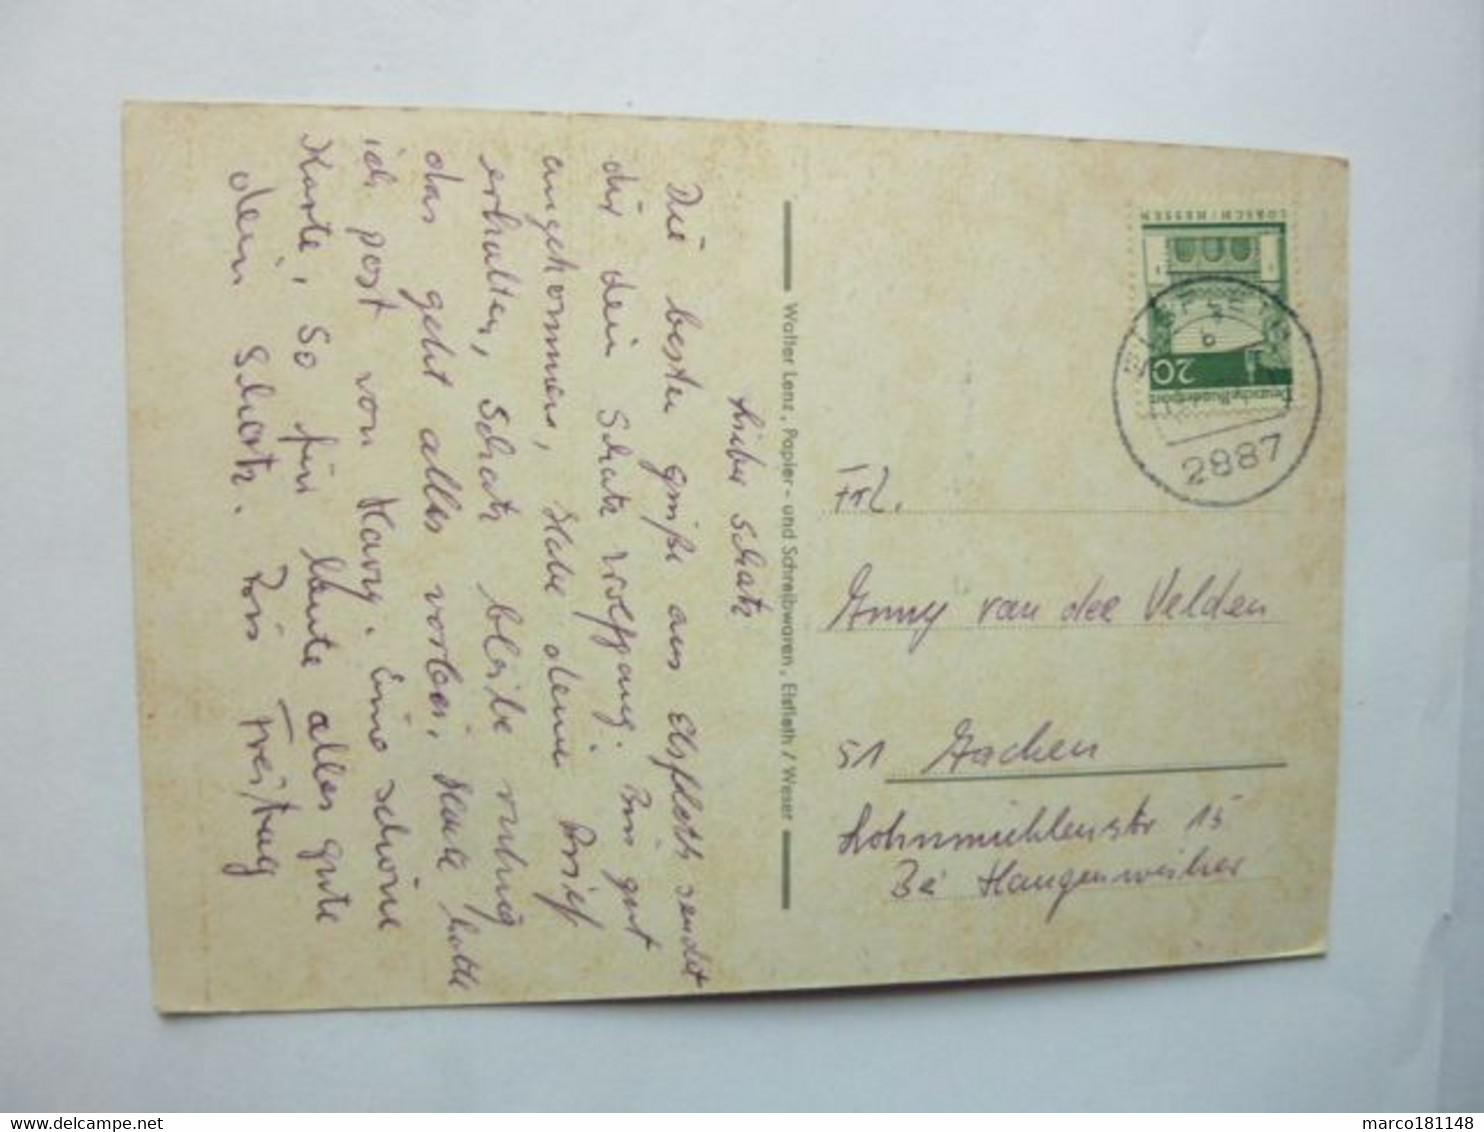 Lieber Schatz
Die besten grüße aus Elsfleth sendet
dir dein Schatz Wolfgang. Bin gut
angekommen, Habe deine Brief
erhalten, Schatz bleibe ruhig
das geht alles vorbei, Heute hatte
ich post von Harry. Eine schöne
Karte, So für heute alles gute
dein Schatz. Bis Freitag
Walter Lenz, Papier- und Schreibwaren, Elsfleth / Weser
LORSCH / HESSEN
20
Deutsche Bundespost
ELSFLETH
b
2887
Frl.
Anny van der Velden
51 Aachen
Lohnmühlenstr 15
Bei Hangenweiher
marco181148